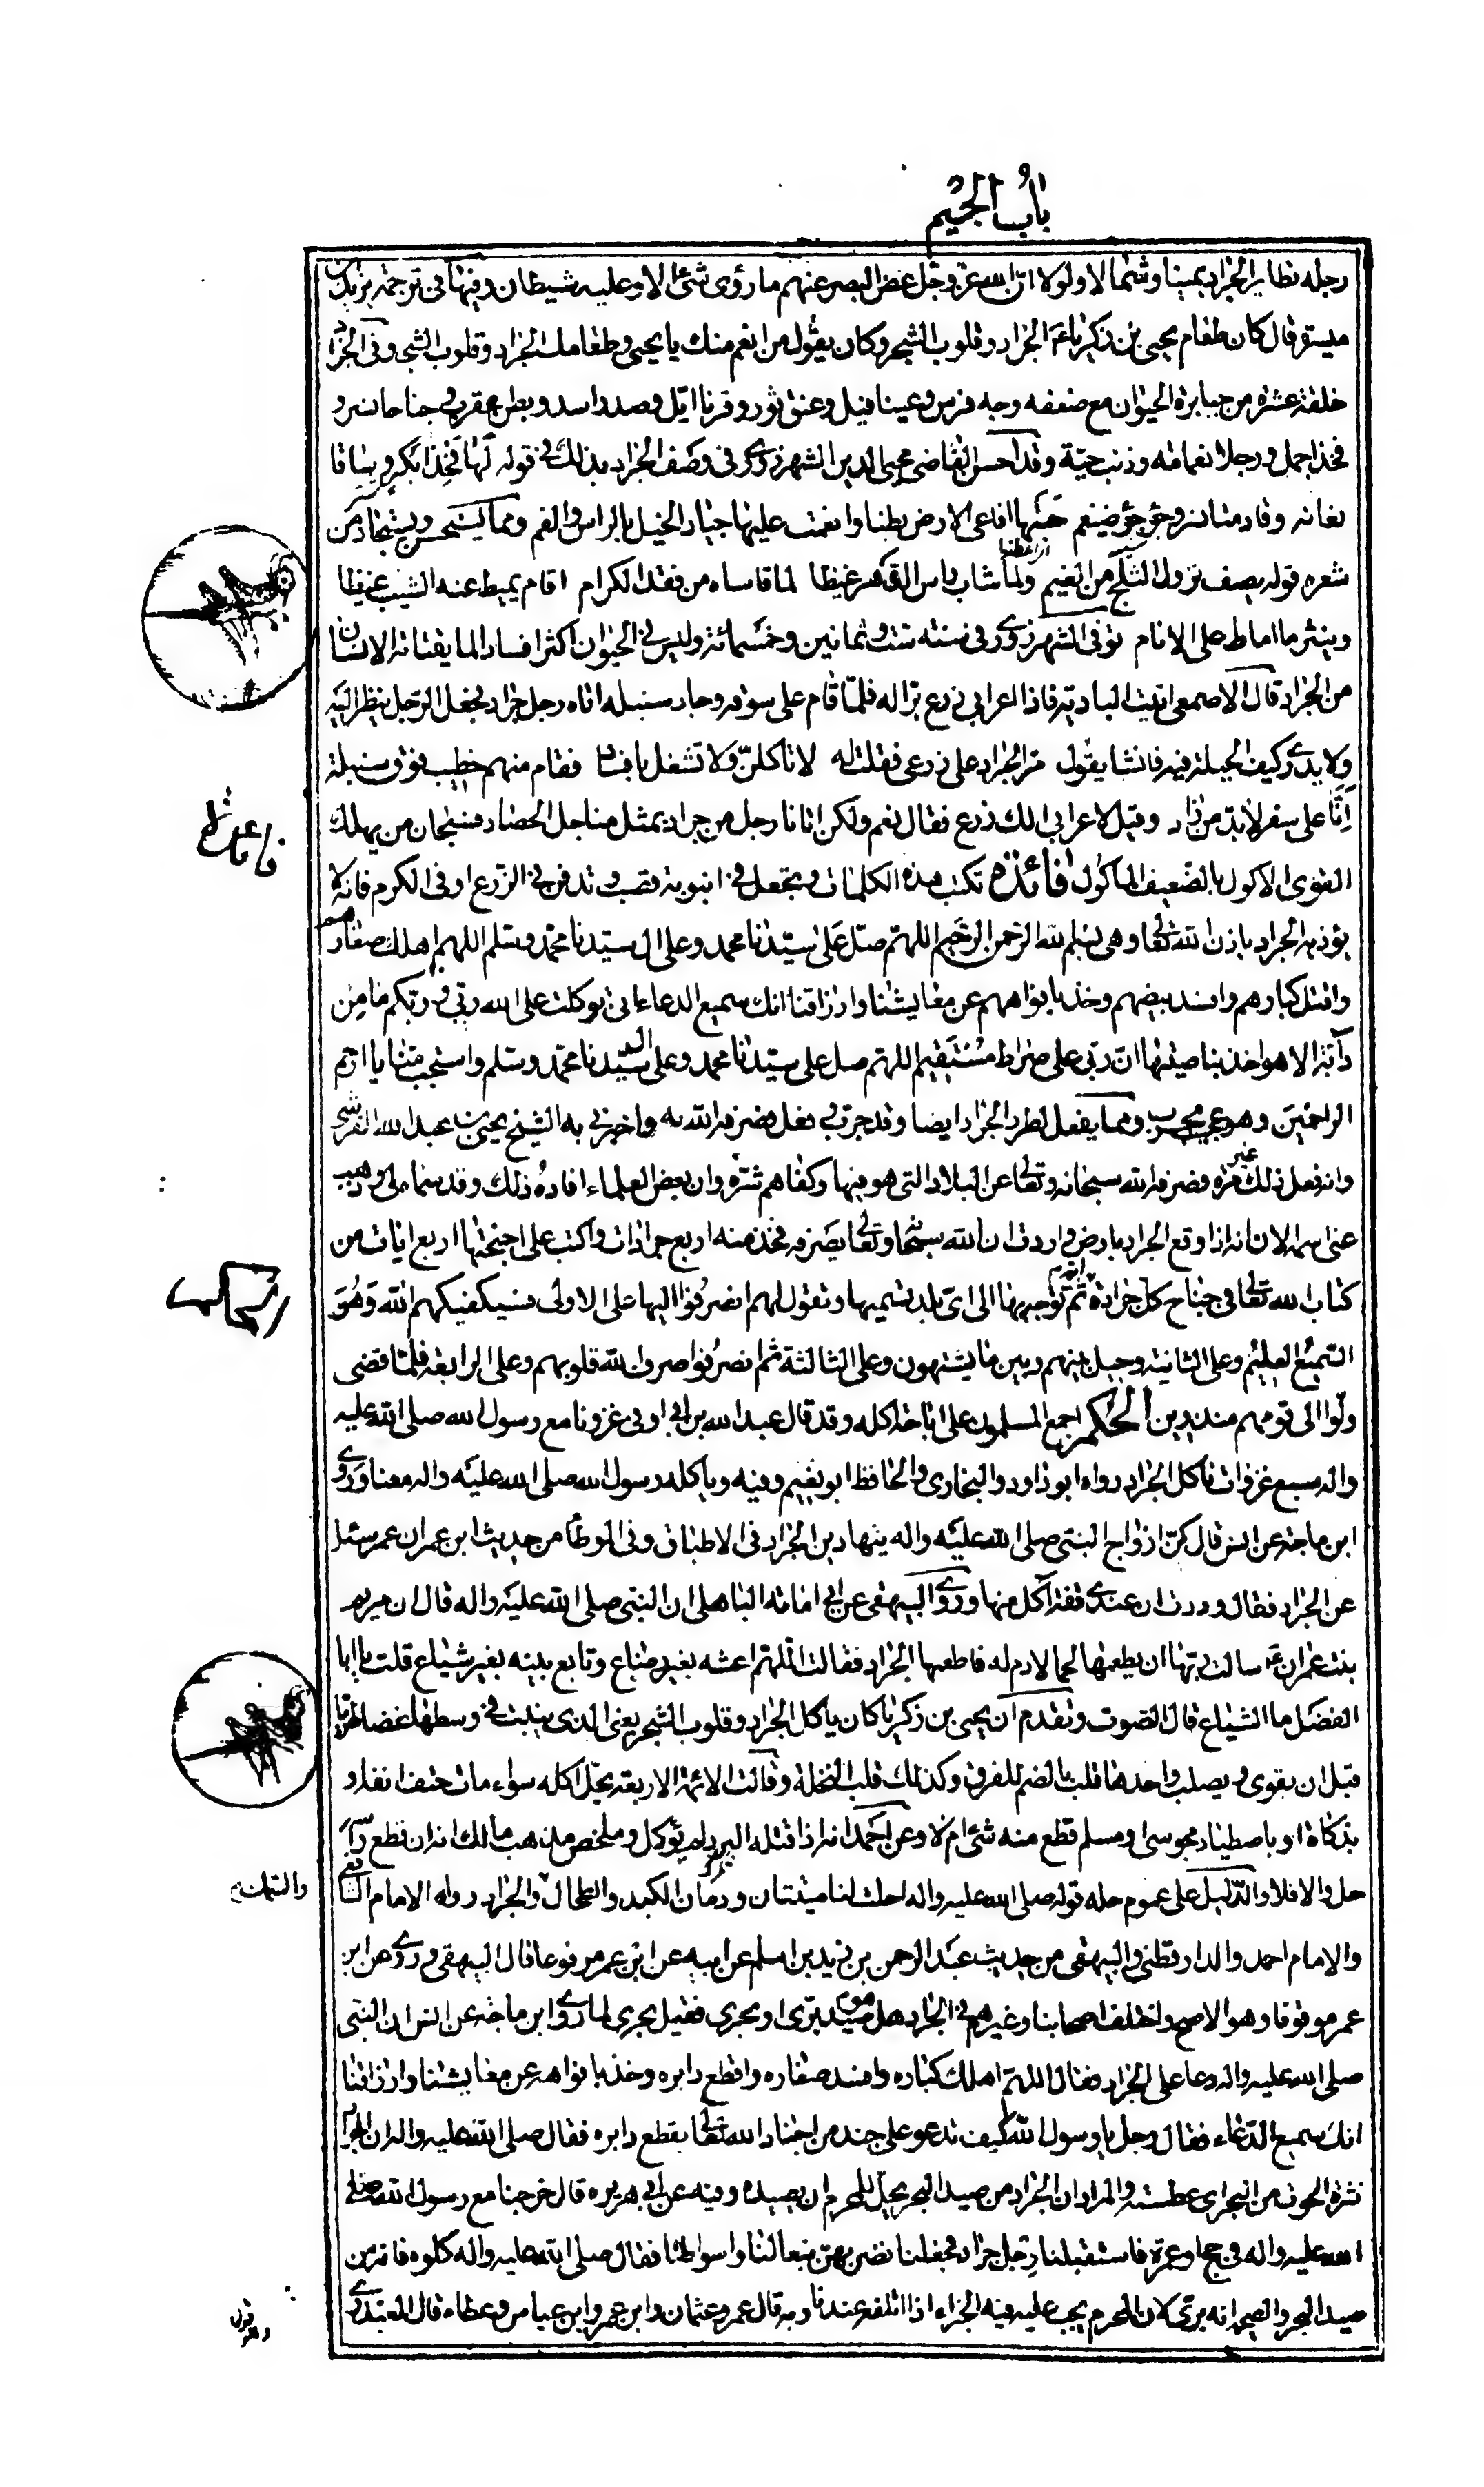 باب الجيم
رجله تطاير الجراد يمينا وشمالا ولولا ان الله عز وجل غض البصر عنهم ما رؤى شئ الا وعليه شيطان وفيها فى ترجمة يزيد بن
ميسرة قال كان طعام يحيى بن زكريا عم الجراد وقلوب الشجر وكان يقول من انعم منك يا يحيى وطعامك الجراد وقلوب الشجر وفى الجراد
خلقة عشرة من جبابرة الحيوان مع ضعفه وجه فرس وعينا فيل وعنق ثور وقرنا ايل وصدر اسد وبطن عقرب وجناحا نسر و
فخذا جمل ورجلا نعامة وذنب حية وقد احسن القاضى محيى الدين الشهرزورى فى وصف الجراد بذلك فى قوله لها فخذا بكر وساقا
نعامة وقادمتا نسر وجؤجؤ ضيغم حبتها افاعى الارض بطنا وانعمت عليها جياد الخيل بالراس والفم ومما يستحسن ويستجاد من
شعره قوله يصف نزول الثلج من الغيم ولما شاب راس الدهر غيظا لما قاساه من فقد الكرام اقام يميط عنه الشيب غيظا
وينثر ما اماط على الانام توفى الشهرزورى فى سنة ست وثمانين وخمسمائة وليس فى الحيوان اكثر افسادا لما يقتاته الانسان
من الجراد قال الاصمعى اتيت البادية فاذا اعرابى زرع برا له فلما قام على سوقه وجاد سنبله اتاه رجل جراد فجعل الرجل ينظر اليه
ولا يدرى كيف الحيلة فيه فانشا يقول مر الجراد على زرعى فقلت له لا تاكلن ولا تشغل بافساد فقام منهم خطيب فوق سنبلة
انا على سفر لا بد من زاد وقيل لاعرابى الك زرع فقال نعم ولكن اتانا رجل من جراد بمثل مناجل الحصاد فسبحان من يهلك
القوى الاكول بالضعيف الماكول فائدة تكتب هذه الكلمات وتجعل فى انبوبة قصب وتدفن فى الزرع او فى الكرم فانه لا
يؤذيه الجراد باذن الله تعالى وهى بسم الله الرحمن الرحيم اللهم صل على سيدنا محمد وعلى ال سيدنا محمد وسلم اللهم اهلك صغارهم
واقتل كبارهم وافسد بيضهم وخذ بافواههم عن معايشنا وارزاقنا انك سميع الدعاء انى توكلت على الله ربى وربكم ما من
دآبة الا هو اخذ بناصيتها ان ربى على صراط مستقيم اللهم صل على سيدنا محمد وعلى ال سيدنا محمد وسلم واستجب منا يا ارحم
الراحمين وهو عجيب مجرب ومما يفعل لطرد الجراد ايضا وقد جرب وفعل فصرفه الله به واخبرنى به الشيخ يحيى بن عبد الله القرشى
وانه فعل ذلك غير مرة فصرفه الله سبحانه وتعالى عن البلاد التى هو فيها وكفاهم شره وان بعض العلماء افاده ذلك وقد سماه لى وذهب
عنى اسمه الان انه اذا وقع الجراد بارض واردت ان الله سبحانه وتعالى يصرفه فخذ منه اربع جرادات واكتب على اجنحتها اربع ايات من
كتاب الله تعالى فى جناح كل جرادة اية ثم توجهها الى اى بلد تسميها وتقول لهم انصرفوا اليها على الاولى فسيكفيكهم الله وهو
السميع العليم وعلى الثانية وحيل بينهم وبين ما يشتهون وعلى الثالثة ثم انصرفوا صرف الله قلوبهم وعلى الرابعة فلما قضى
ولوا الى قومهم منذرين الحكم اجمع المسلمون على اباحة اكله وقد قال عبد الله بن ابى اوفى غزونا مع رسول الله صلى الله عليه
واله سبع غزوات ناكل الجراد رواه ابو داود والبخارى والحافظ ابو نعيم وفيه وياكله رسول الله صلى الله عليه واله معنا وروى
ابن ماجة عن انس قال كن ازواج النبى صلى الله عليه واله يتهادين الجراد فى الاطباق وفى الموطأ من حديث ابن عمر ان عمر سئل
عن الجراد فقال وددت ان عندى قفة آكل منها وروى البيهقى عن ابى امامة الباهلى ان النبى صلى الله عليه واله قال ان مريم
بنت عمران عم سالت ربها ان يطعمها لحما لا دم له فاطعمها الجراد فقالت اللهم اعشه بغير رضاع وتابع بينه بغير شياع قلت يا ابا
الفضل ما الشياع قال الصوت وتقدم ان يحيى بن زكريا كان ياكل الجراد وقلوب الشجر يعنى الذى ينبت فى وسطها غضا طريا
قبل ان يقوى ويصلب واحدها قلب بالضم للفرق وكذلك قلب النخلة وقالت الائمة الاربعة يحل اكله سواء مات حتف انفه او
بذكاة او باصطياد مجوسى او مسلم قطع منه شئ ام لا وعن احمد انه اذا قتله البرد لم يؤكل وملخص مذهب مالك انه ان قطع راسه
حل والا فلا والدليل على عموم حله قوله صلى الله عليه واله احلت لنا ميتتان ودمان الكبد والطحال والجراد رواه الامام الشافعى
والامام احمد والدارقطنى والبيهقى من حديث عبد الرحمن بن زيد بن اسلم عن ابيه عن ابن عمر مرفوعا قال البيهقى وروى عن ابن
عمر موقوفا وهو الاصح واختلف اصحابنا وغيرهم فى الجراد هل هو صيد برى او بحرى فقيل بحرى لما روى ابن ماجة عن انس ان النبى
صلى الله عليه واله دعا على الجراد فقال اللهم اهلك كباره وافسد صغاره واقطع دابره وخذ بافواهه عن معايشنا وارزاقنا
انك سميع الدعاء فقال رجل يا رسول الله كيف تدعو على جند من اجناد الله تعالى بقطع دابره فقال صلى الله عليه واله ان الجراد
نثرة الحوت من البحر اى عطسته والمراد ان الجراد من صيد البحر يحل للمحرم ان يصيده وفيه عن ابى هريره قال خرجنا مع رسول الله صلى
الله عليه واله فى حج او عمرة فاستقبلنا رجل جراد فجعلنا نضربهن بنعالنا واسواطنا فقال صلى الله عليه واله كلوه فانه من
صيد البحر والصحيح انه برى لان المحرم يجب عليه فيه الجزاء اذا اتلفه عندنا وبه قال عمر وعثمان وابن عمر وابن عباس وعطاء قال العبدرى
والسمك